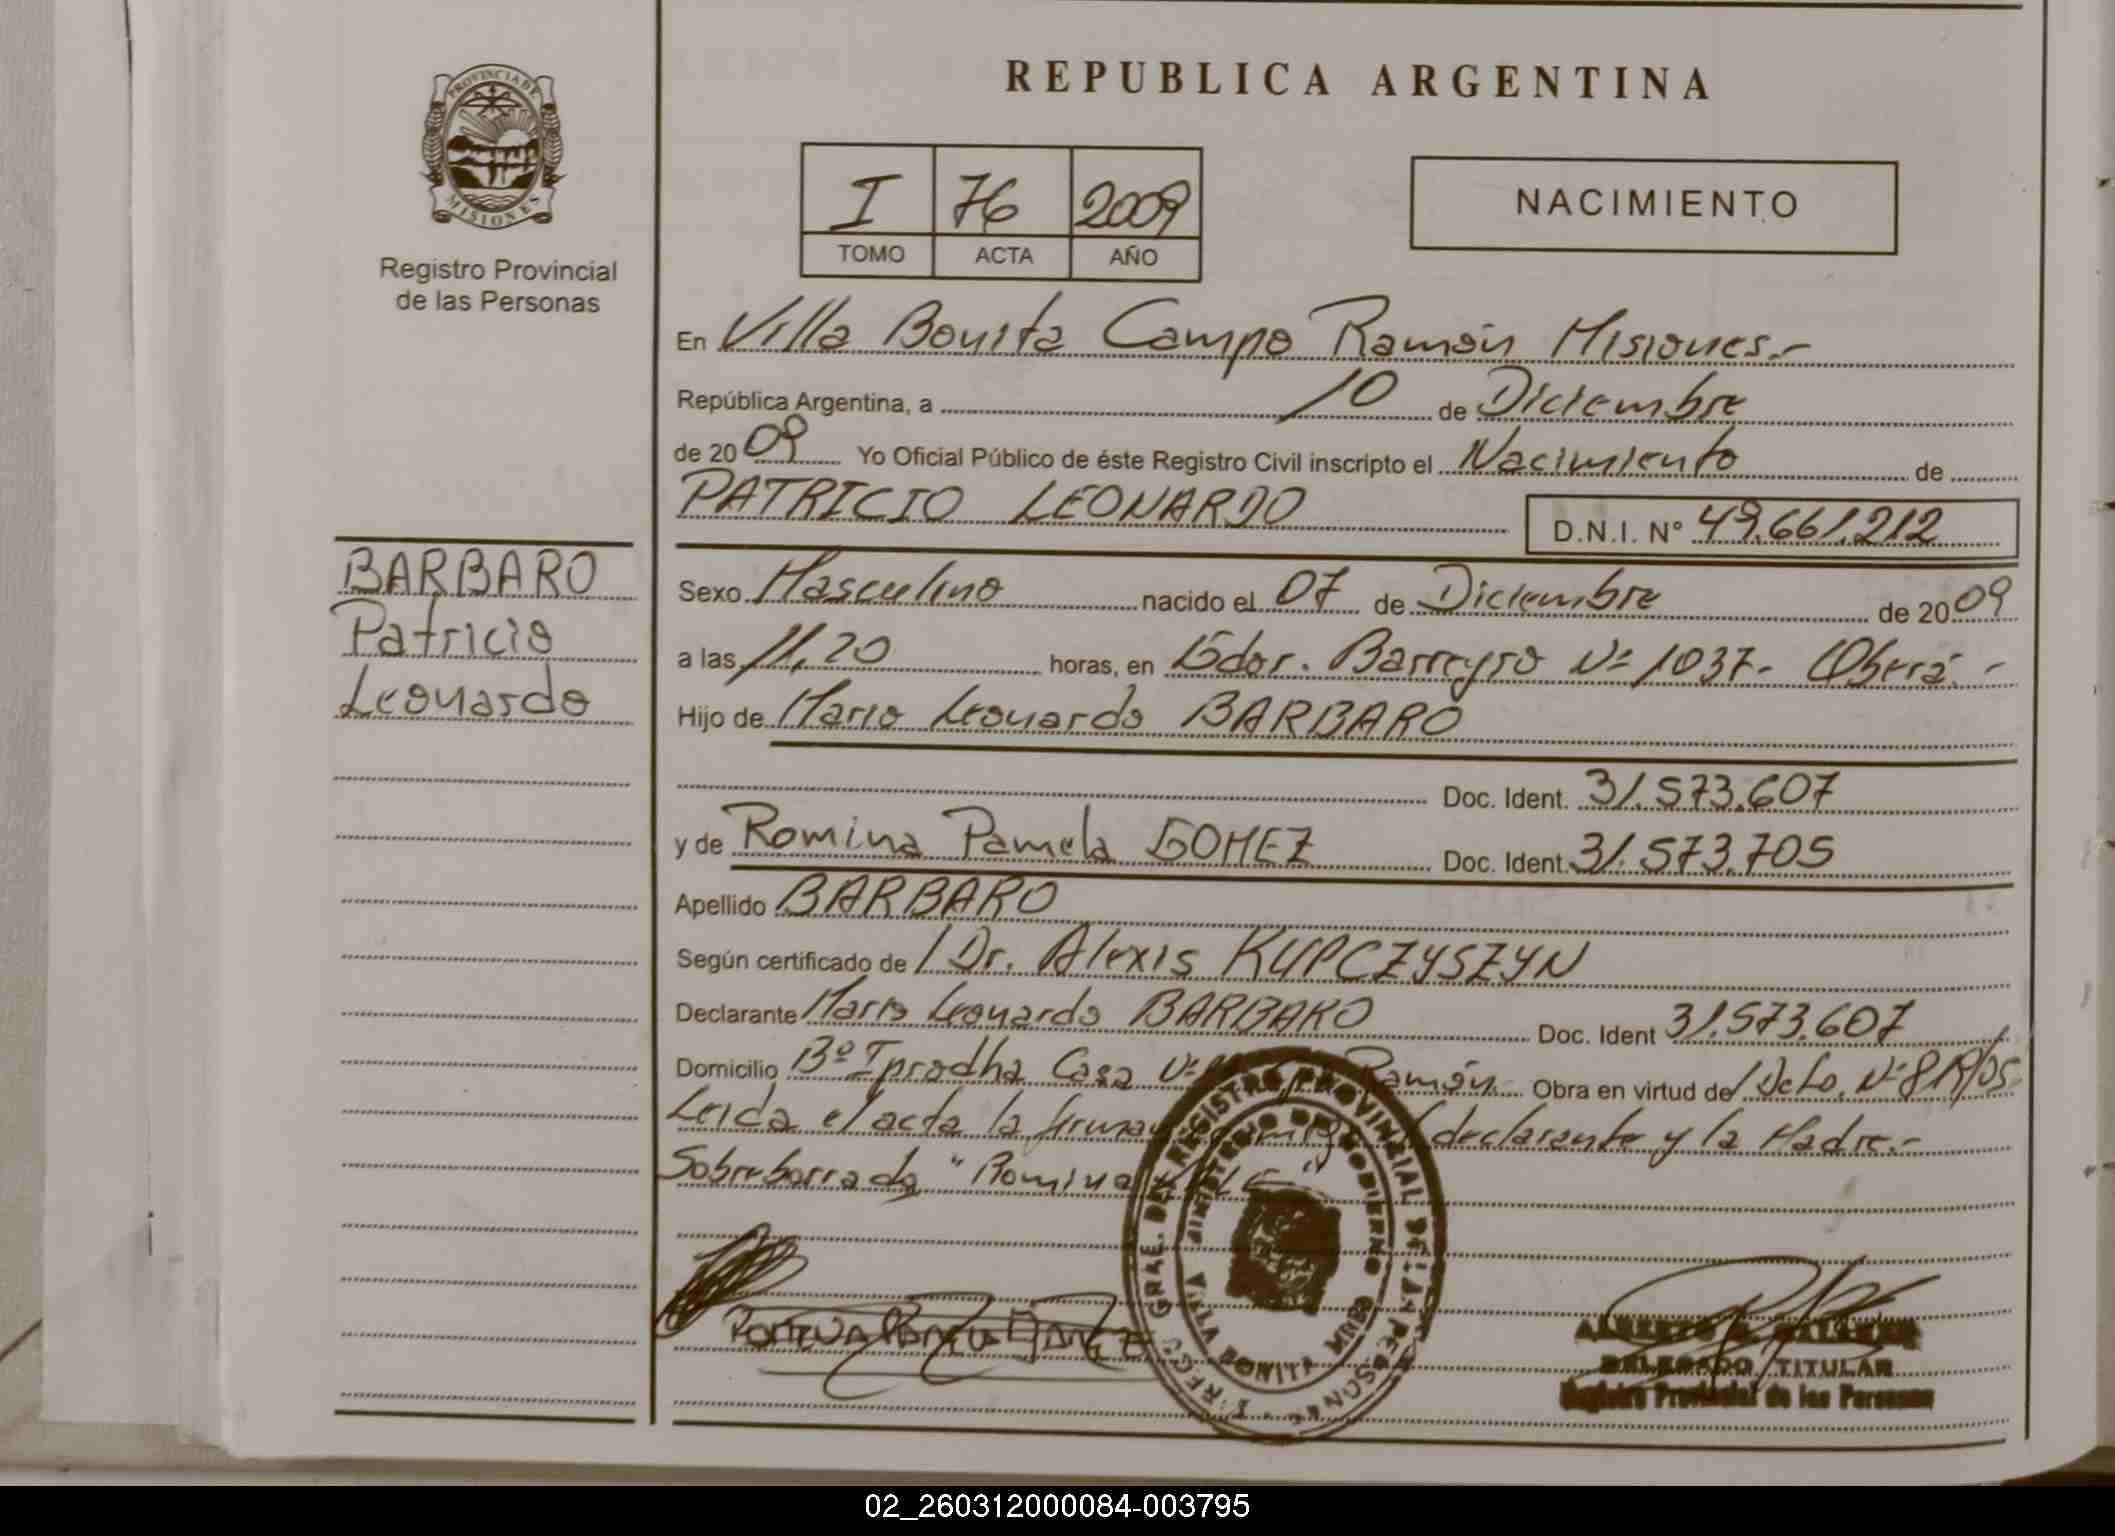 PROVINCIA DE
MISIONES
Registro Provincial
de las Personas
BARBARO
Patricio
Leonardo
REPUBLICA ARGENTINA
I 76 2009
TOMO ACTA AÑO
NACIMIENTO
En Villa Bonita Campo Ramón Misiones.-
República Argentina, a 10 de Diciembre
de 2009 Yo Oficial Público de éste Registro Civil inscripto el Nacimiento de
PATRICIO LEONARDO D.N.I. Nº 49.661.212
Sexo Masculino nacido el 07 de Diciembre de 2009
a las 11,20 horas, en Gdor. Barreyro Nº 1037- Oberá.-
Hijo de Mario Leonardo BARBARO
Doc. Ident. 31.573.607
y de Romina Pamela GOMEZ Doc. Ident. 31.573.705
Apellido BARBARO
Según certificado de / Dr. Alexis KUPCZYSZYN
Declarante Mario Leonardo BARBARO Doc. Ident 31.573.607
Domicilio Bº Iprodha Casa Nº Ramón Obra en virtud de / Dcto. Nº 8 R/05.
Leida el acta la firman declarante y la Madre.-
Sobreborrado "Romina
DIRECC. GRAL. DEL REGISTRO PROVINCIAL DE LAS PERSONAS
MINISTERIO DE GOBIERNO
VILLA BONITA MNES
DELEGADO TITULAR
Registro Provincial de las Personas
02_260312000084-003795